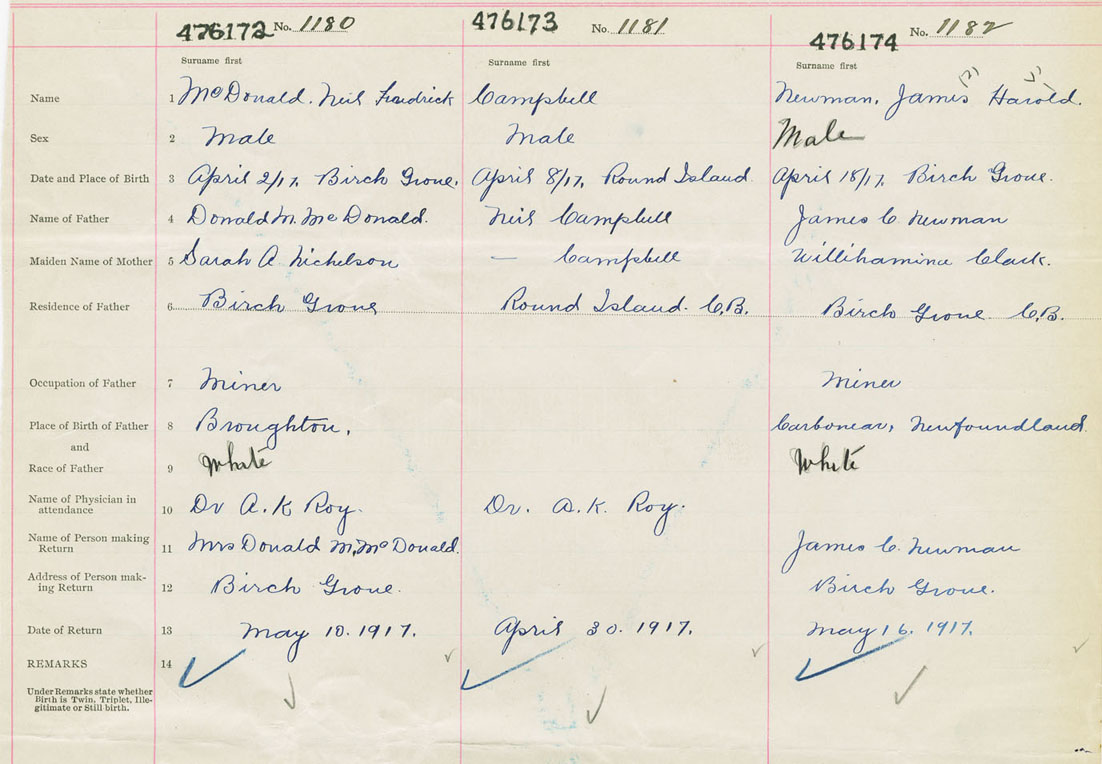 476172 No. 1180 476173 No. 1181 476174 No. 1182
Surname first Surname first Surname first
Name 1 McDonald. Neil Fredrick Campbell Newman, James (2) Harold. (1)
Sex 2 Male Male Male
Date and Place of Birth 3 April 2/17, Birch Grove. April 8/17, Round Island. April 18/17, Birch Grove.
Name of Father 4 Donald M. McDonald. Neil Campbell James C. Newman
Maiden Name of Mother 5 Sarah A Nickelson — Campbell Willihamina Clark.
Residence of Father 6 Birch Grove Round Island. C.B. Birch Grove. C.B.
Occupation of Father 7 Miner Miner
Place of Birth of Father 8 Broughton, Carbonear, Newfoundland.
and
Race of Father 9 White White
Name of Physician in
attendance 10 Dr A. K Roy. Dr. A. K. Roy.
Name of Person making
Return 11 Mrs Donald M, McDonald. James C. Newman
Address of Person mak-
ing Return 12 Birch Grove. Birch Grove.
Date of Return 13 May 10. 1917. April 30. 1917. May 16. 1917.
REMARKS 14
Under Remarks state whether
Birth is Twin, Triplet, Ille-
gitimate or Still birth.